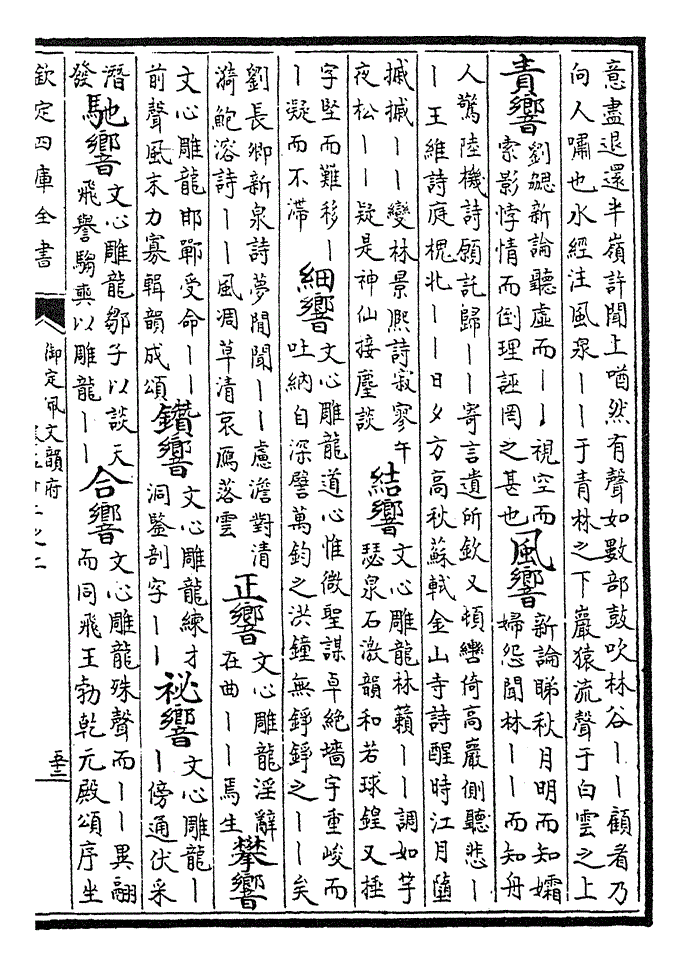 意盡退還半嶺許聞上㗜然有聲如數部鼓吹林谷丨丨顧看乃
向人嘯也水經注風泉丨丨于青林之下巖猿流聲于白雲之上
責響
劉勰新論聽虛而丨丨視空而
索影悖情而倒理誣罔之甚也
風響
新論睇秋月明而知孀
婦怨聞林丨丨而知舟
人驚陸機詩願託歸丨丨寄言遺所欽又頓轡倚高巖側聽悲丨
丨王維詩庭槐北丨丨日夕方高秋蘇軾金山寺詩醒時江月墮
摵摵丨丨變林景熙詩寂寥午
夜松丨丨疑是神仙接麈談
結響
文心雕龍林籟丨丨調如竽
瑟泉石激韻和若球鍠又捶
字堅而難移丨
丨凝而不滯
細響
文心雕龍道心惟微聖謀卓絕墻宇重峻而
吐納自深譬萬鈞之洪鐘無錚錚之丨丨矣
劉長卿新泉詩夢閒聞丨丨慮澹對清
漪鮑溶詩丨丨風凋草清哀鴈落雲
正響
文心雕龍淫辭
在曲丨丨焉生
攀響
文心雕龍邯鄲受命丨丨
前聲風末力寡輯韻成頌
鑽響
文心雕龍練才
洞鑒剖字丨丨
祕響
文心雕龍丨
丨傍通伏采
潛
發
馳響
文心雕龍鄒子以談天
飛譽騶奭以雕龍丨丨
合響
文心雕龍殊聲而丨丨異翮
而同飛王勃乾元殿頌序坐
欽定四庫全書
御定佩文韻府